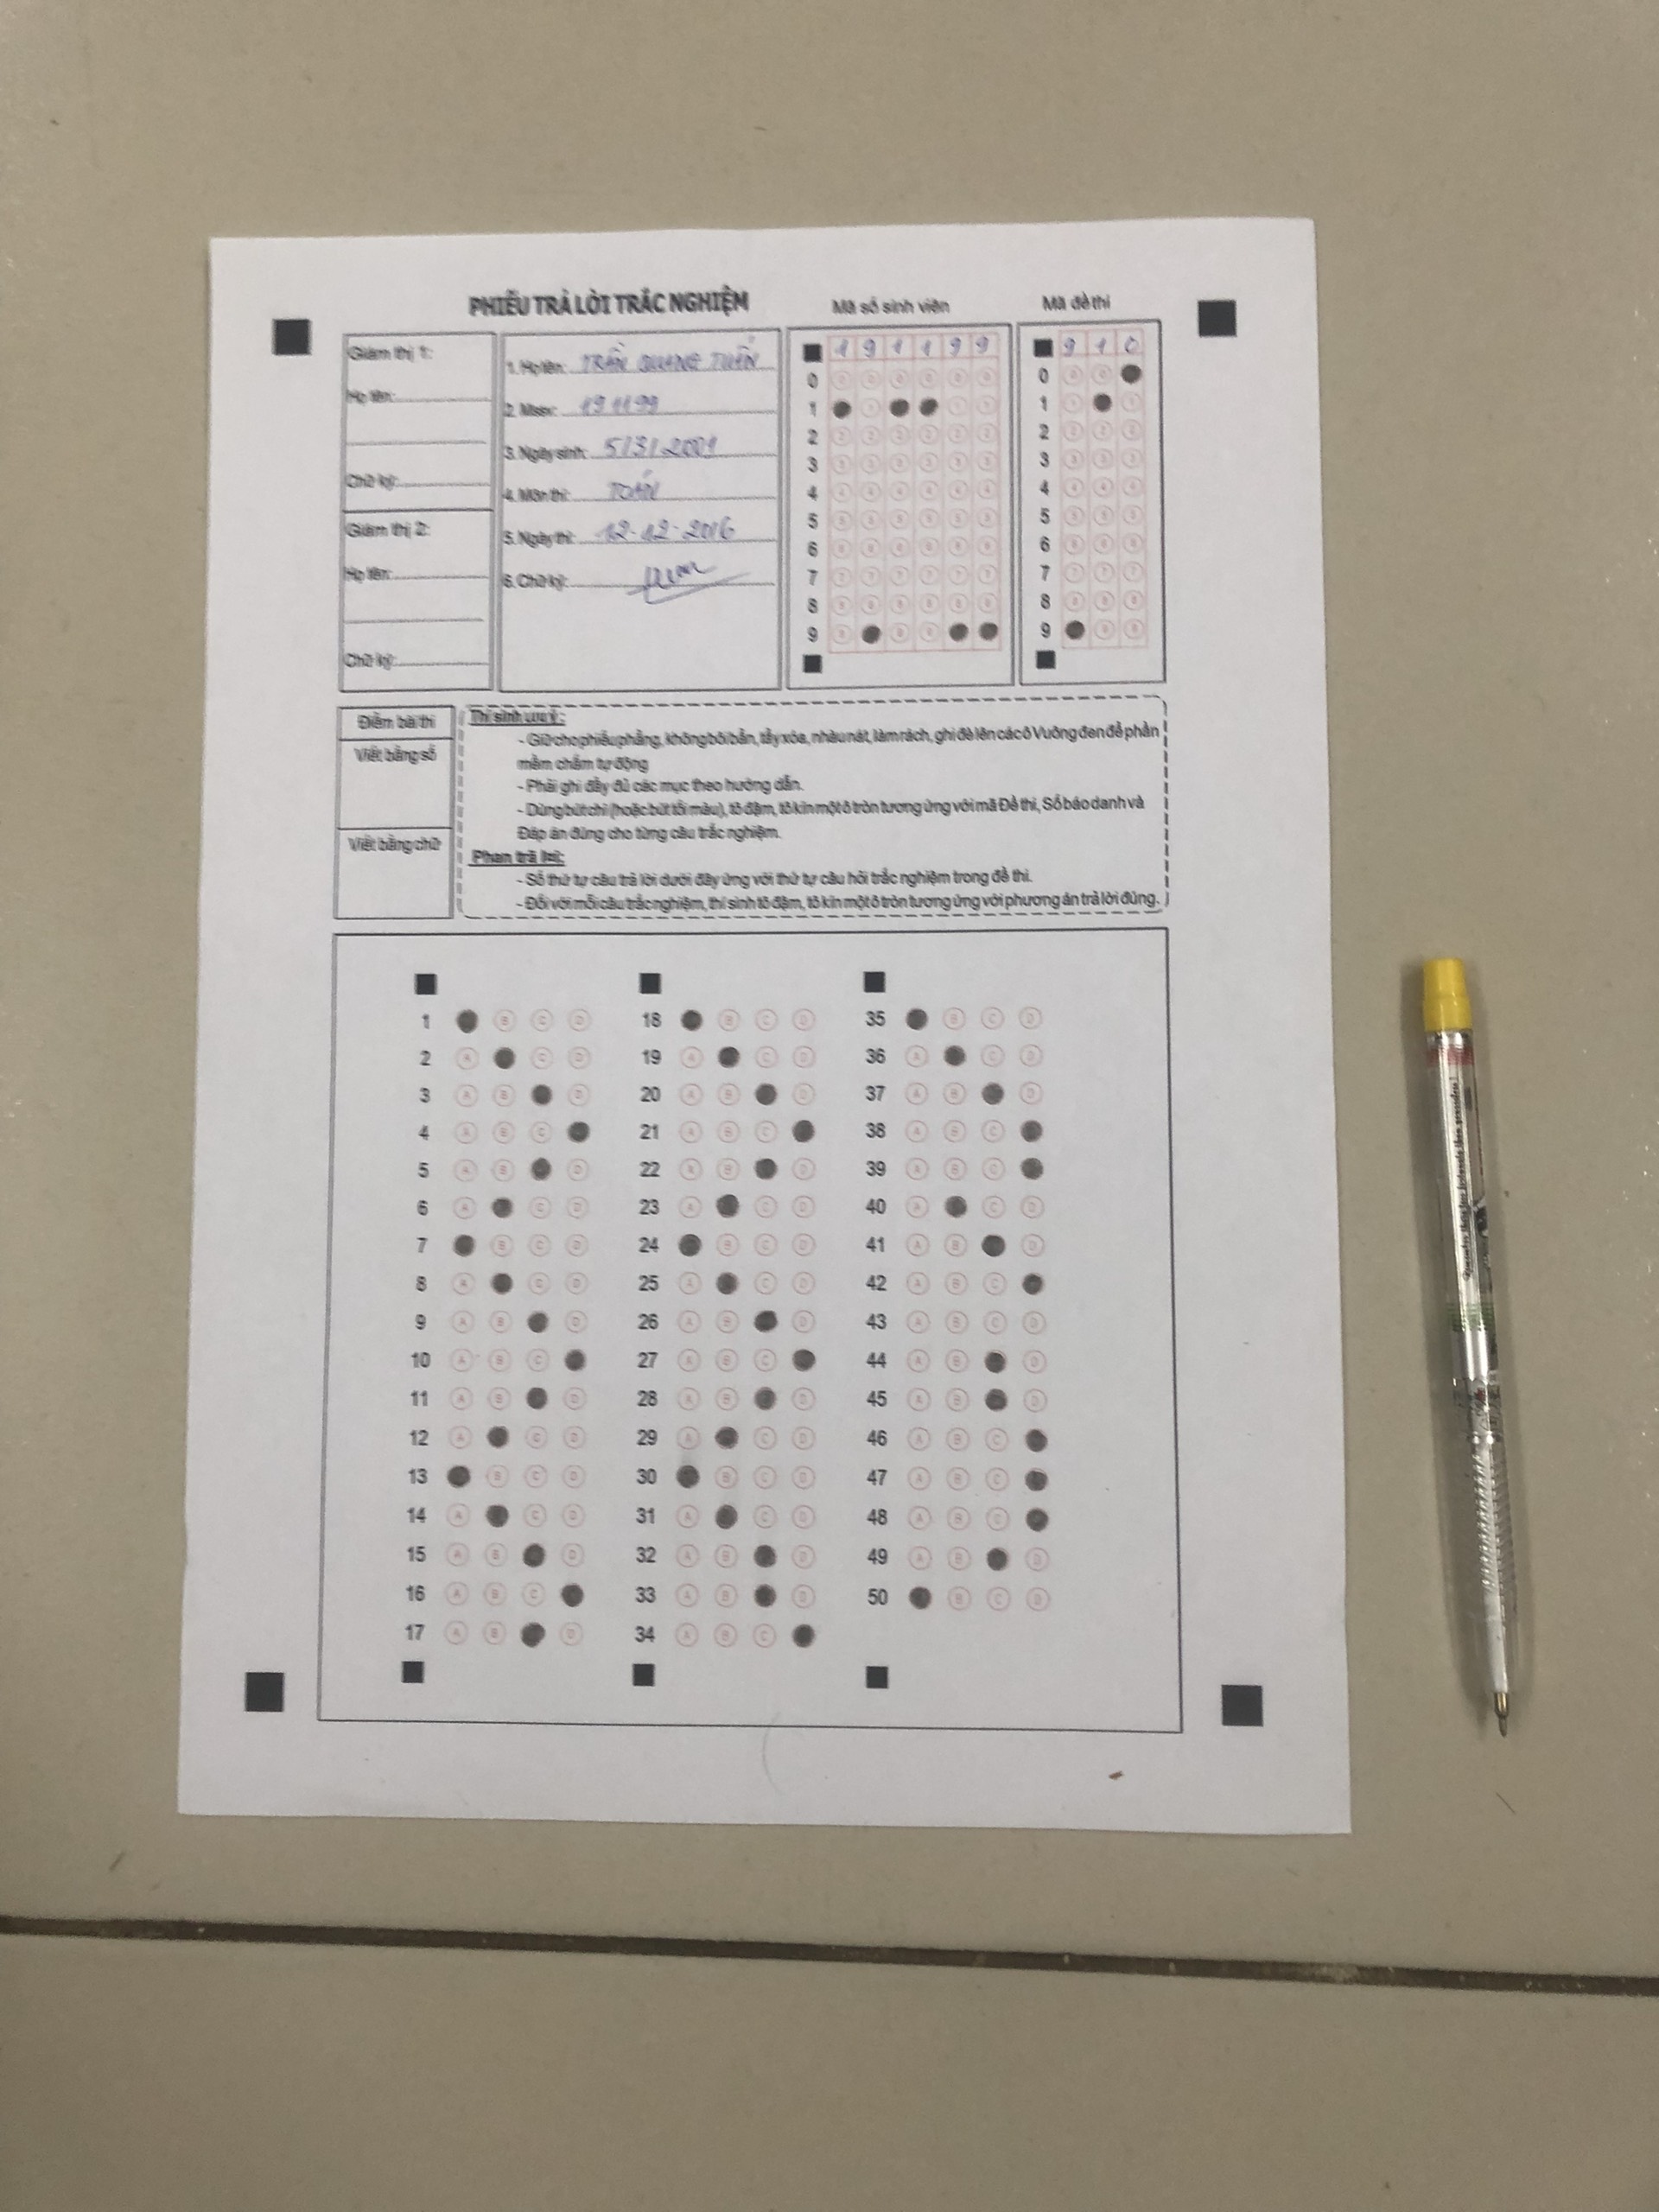 PHIẾU TRẢ LỜI TRẮC NGHIỆM
Mã số sinh viên
Mã đề thi
Giám thị 1:
Họ tên:
Chữ ký:
Giám thị 2:
Họ tên:
Chữ ký:
1. Họ tên: TRẦN QUANG TUẤN
2. Mssv: 191199
3. Ngày sinh: 5/3/2001
4. Môn thi: TOÁN
5. Ngày thi: 12-12-2016
6. Chữ ký:
1 9 1 1 9 9
0
1
2
3
4
5
6
7
8
9
9 1 0
0
1
2
3
4
5
6
7
8
9
Điểm bài thi
Viết bằng số
Viết bằng chữ
Thí sinh lưu ý:
- Giữ cho phiếu phẳng, không bôi bẩn, tẩy xóa, nhàu nát, làm rách, ghi đè lên các ô Vuông đen để phần
mềm chấm tự động
- Phải ghi đầy đủ các mục theo hướng dẫn.
- Dùng bút chì (hoặc bút tối màu), tô đậm, tô kín một ô tròn tương ứng với mã Đề thi, Số báo danh và
Đáp án đúng cho từng câu trắc nghiệm.
Phan trả lời:
- Số thứ tự câu trả lời dưới đây ứng với thứ tự câu hỏi trắc nghiệm trong đề thi.
- Đối với mỗi câu trắc nghiệm, thí sinh tô đậm, tô kín một ô tròn tương ứng với phương án trả lời đúng.
1 B C D
2 A C D
3 A B D
4 A B C
5 A B D
6 A C D
7 B C D
8 A C D
9 A B D
10 A B C
11 A B D
12 A C D
13 B C D
14 A C D
15 A B D
16 A B C
17 A B D
18 B C D
19 A C D
20 A B D
21 A B C
22 A B D
23 A C D
24 B C D
25 A C D
26 A B D
27 A B C
28 A B D
29 A C D
30 B C D
31 A C D
32 A B D
33 A B D
34 A B C
35 B C D
36 A C D
37 A B D
38 A B C
39 A B C
40 A C D
41 A B D
42 A B C
43 A B C D
44 A B D
45 A B D
46 A B C
47 A B C
48 A B C
49 A B D
50 B C D